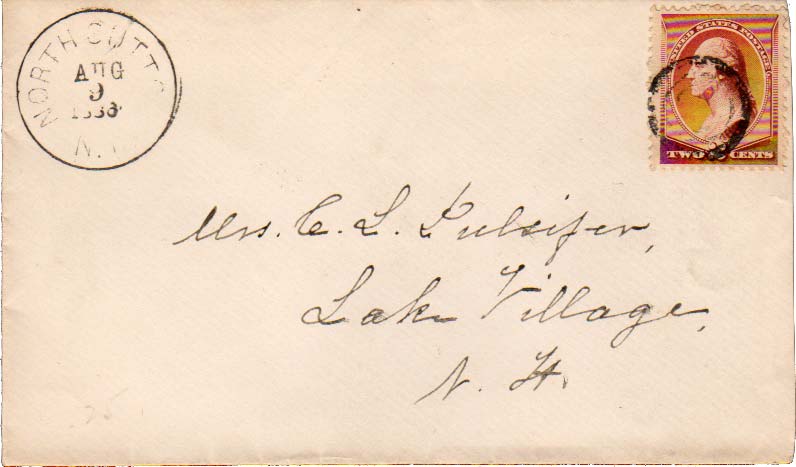 NORTH CUTTS
AUG
9
N.
UNITED STATES POSTAGE
TWO 2 CENTS
Mrs. C. L. Pulsifer,
Lake Village,
N. H.
.25